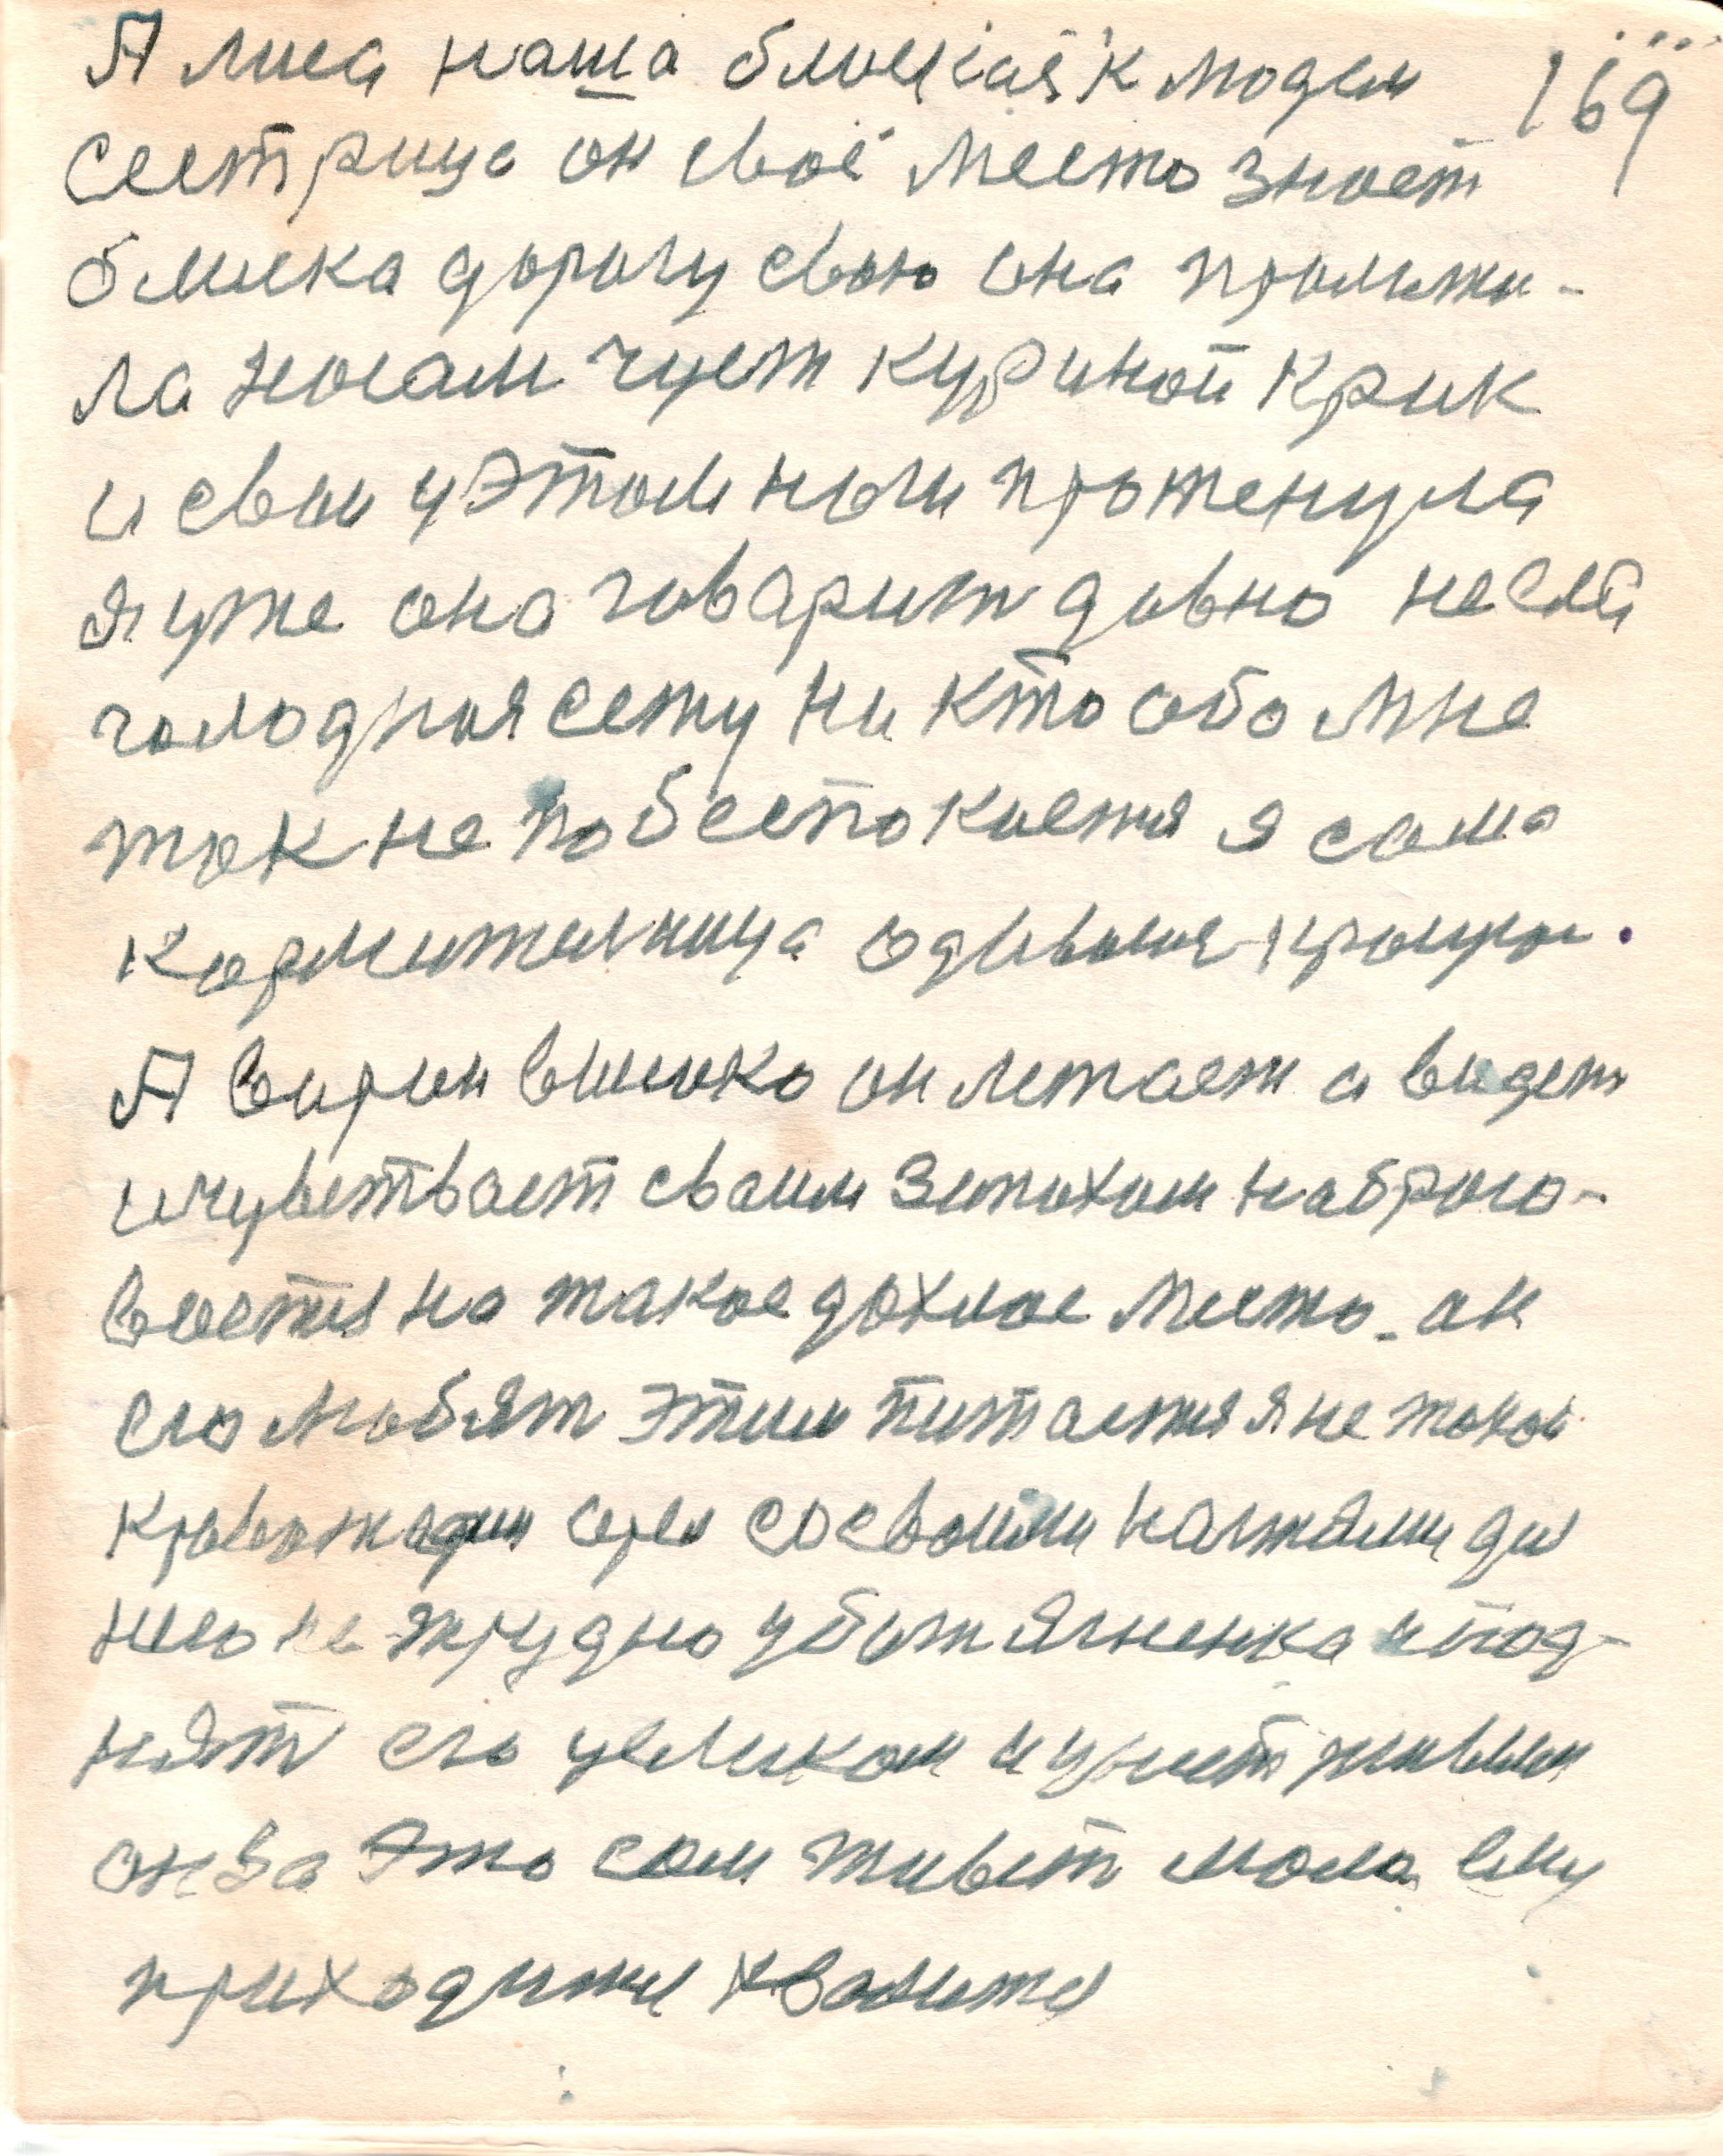 169
А лиса наша близкая к людям
сестрица он своё место знает
близка дорогу свою она проложи-
ла носам чует куриной крик
и свои у этом ноги протенула
я уже она говарит давно не ела
голодная сежу ни кто обо мне
так не побеспокоется я сама
кормителница
А ворон высоко он летает а видет
и чувствает своим запахом набрасо-
вается на такое дохлое место. ак
его любят этим питается я не такой
кровожадин орел со своими кагтями дл
него не трудно убит ягненка и под-
нят его целиком и унест
он за это сам живет мала ему
приходится хвалится